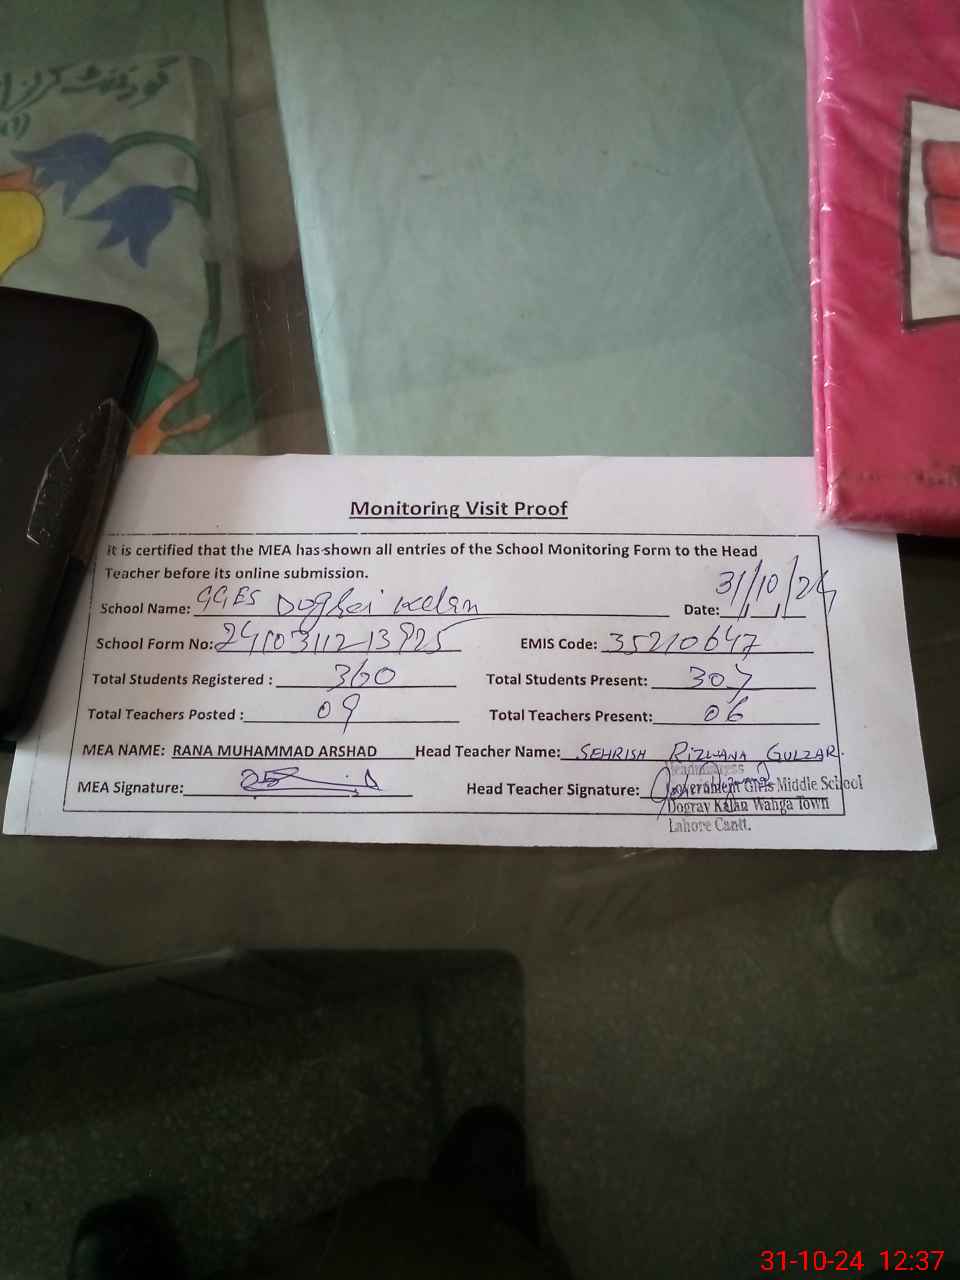 گورنمنٹ گرلز
Monitoring Visit Proof
It is certified that the MEA has shown all entries of the School Monitoring Form to the Head
Teacher before its online submission.
School Name: GGES Dograi Kalan Date: 31/10/24
School Form No: 2410311213925 EMIS Code: 35210647
Total Students Registered : 360 Total Students Present: 307
Total Teachers Posted : 09 Total Teachers Present: 06
MEA NAME: RANA MUHAMMAD ARSHAD Head Teacher Name: SEHRISH RIZWANA GULZAR.
MEA Signature: Head Teacher Signature:
Headmistress
Government Girls Middle School
Dogray Kalan Wahga Town
Lahore Cantt.
31-10-24 12:37